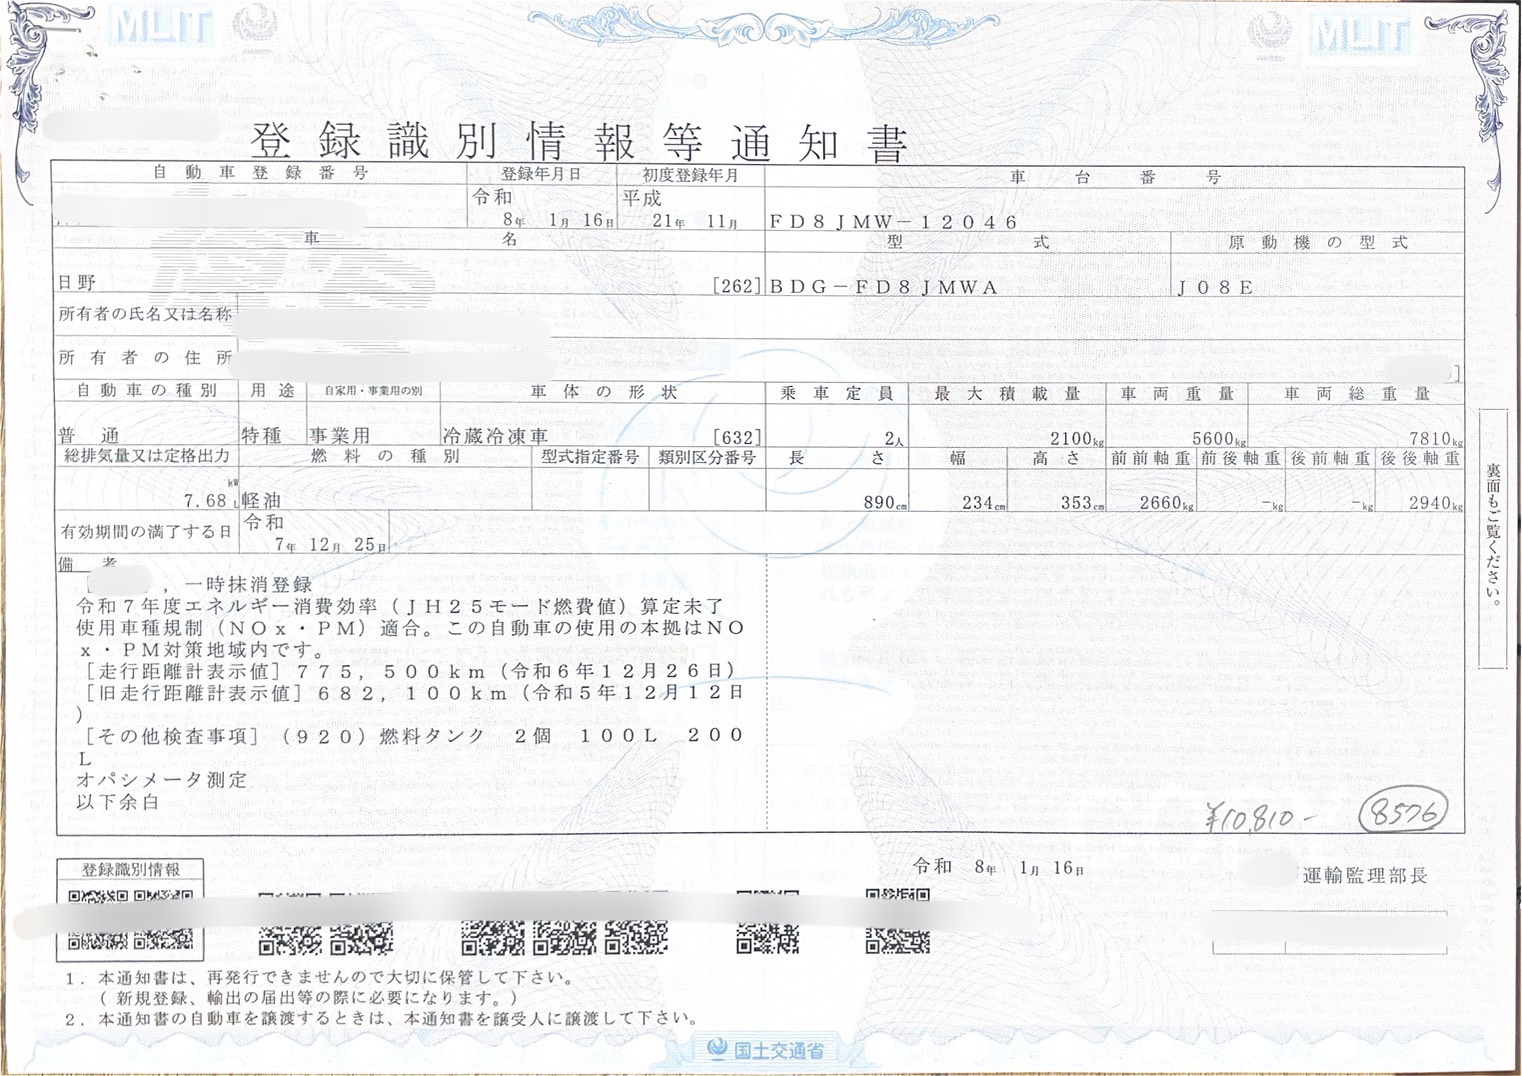 MLIT
MLIT
登録識別情報等通知書
自動車登録番号 登録年月日 初度登録年月 車台番号
令和 8年 1月 16日 平成 21年 11月 FD8JMW-12046
車名 型式 原動機の型式
日野 [262] BDG-FD8JMWA J08E
所有者の氏名又は名称
所有者の住所
自動車の種別 用途 自家用・事業用の別 車体の形状 乗車定員 最大積載量 車両重量 車両総重量
普通 特種 事業用 冷蔵冷凍車 [632] 2人 2100kg 5600kg 7810kg
総排気量又は定格出力 燃料の種別 型式指定番号 類別区分番号 長さ 幅 高さ 前前軸重 前後軸重 後前軸重 後後軸重
kW
7.68 L 軽油 890cm 234cm 353cm 2660kg -kg -kg 2940kg
有効期間の満了する日 令和 7年 12月 25日
備考
，一時抹消登録
令和7年度エネルギー消費効率（JH25モード燃費値）算定未了
使用車種規制（NOx・PM）適合。この自動車の使用の本拠はNO
x・PM対策地域内です。
［走行距離計表示値］775，500km（令和6年12月26日）
［旧走行距離計表示値］682，100km（令和5年12月12日
）
［その他検査事項］（920）燃料タンク 2個 100L 200
L
オパシメータ測定
以下余白
¥10,810- 8576
裏面もご覧ください。
登録識別情報
令和 8年 1月 16日
運輸監理部長
1．本通知書は、再発行できませんので大切に保管して下さい。
（新規登録、輸出の届出等の際に必要になります。）
2．本通知書の自動車を譲渡するときは、本通知書を譲受人に譲渡して下さい。
国土交通省